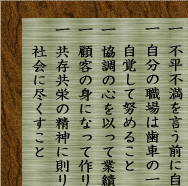 一 不平不満を言う前に自
一 自分の職場は歯車の一
自覚して努めること
一 協調の心を以って業績
一 顧客の身になって作り
一 共存共栄の精神に則り
社会に尽くすこと